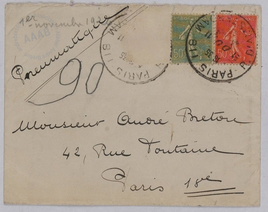 1er novembre
Pneumatique
90
PARIS
PARIS
Monsieur André Breton
42, Rue Fontaine
Paris 18e